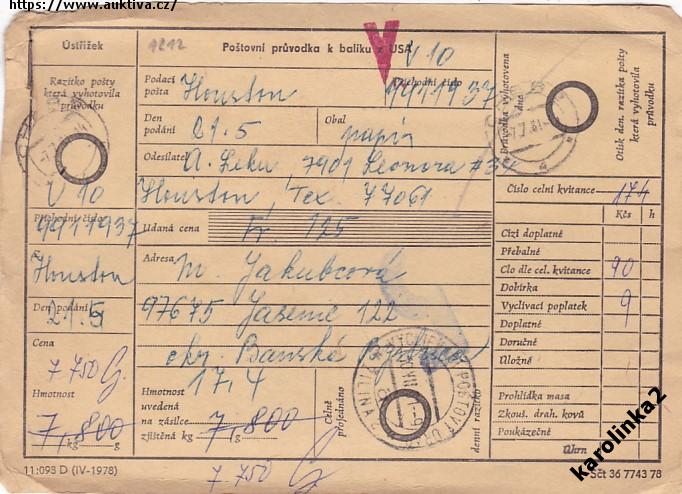 https://www.auktiva.cz/
Ústřižek
1212
Poštovní průvodka k balíku z USA
V 10
Razítko pošty
která vyhotovila
průvodku
Podací
pošta
Houston
Příchodní číslo
9911937
Den
podání
21.5
Obal
papír
Odesílatel
A. Leku, 7901 Leonora #34
Houston, Tex. 77061
V 10
Příchodní číslo
9911937
Udaná cena
Fr. 125
Houston
Adresa
M. Jakubcová
97675 Jasenie 122
okr. Banská Bystrica
Den podání
21.5
Cena
7 750 G
Hmotnost
7,800
kg g
17,4
Hmotnost
uvedená
na zásilce
zjištěná
7,800
kg g
7 750 G
Celně
projednáno
denní razítko
Průvodka vyhotovena
dne
Otisk den. razítka pošty
která vyhotovila
průvodku
Číslo celní kvitance
174
Kčs h
Cizí doplatné
Přebalné
Clo dle cel. kvitance 90
Dobírka
Vyclívací poplatek 9
Doplatné
Doručné
Úložné
Prohlídka masa
Zkouš. drah. kovů
Poukázečné
Úhrn
11-093 D (IV-1978)
Sčt 36 7743 78
karolinka2